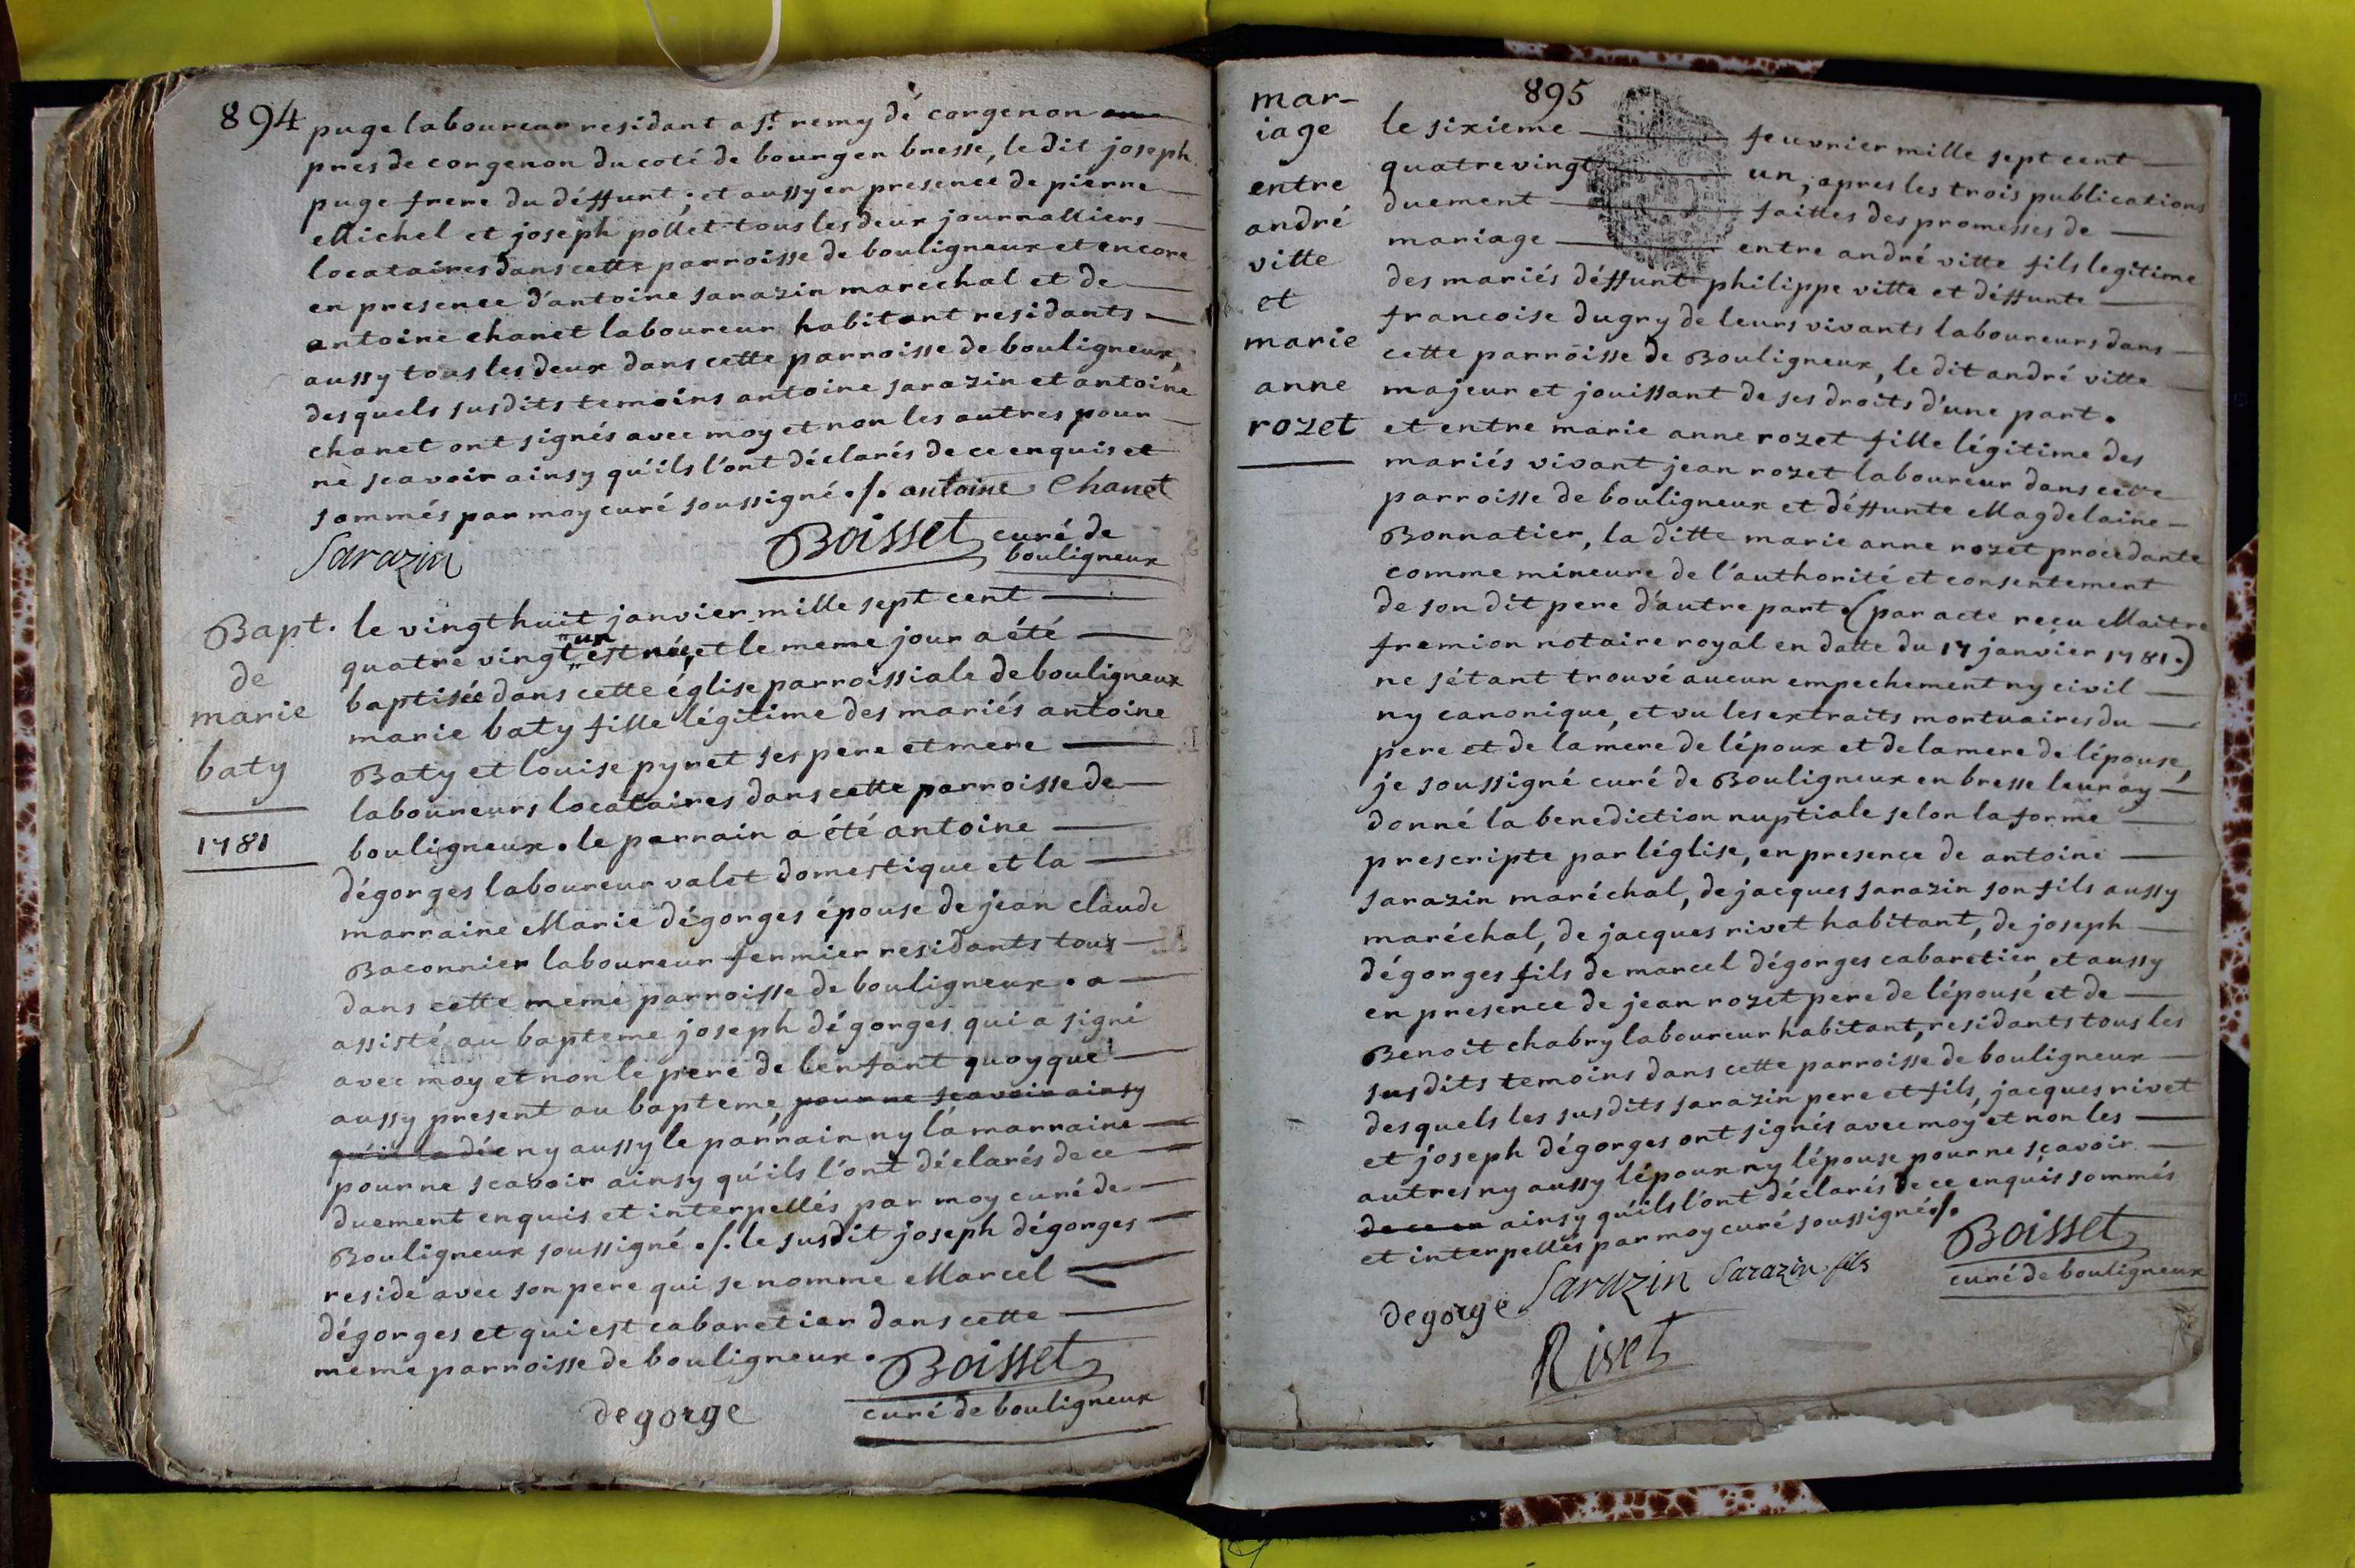 894
puge laboureur residant a st. remy de corgenon
pres de corgenon du coté de bourg en bresse, le dit joseph
puge frere du déffunt; et aussy en presence de pierre
Michel et joseph pollet tous les deux journalliers
locataires dans cette parroisse de bouligneux et encore
en presence d'antoine sarazin marechal et de
antoine chanet laboureur habitant residants
aussy tous les deux dans cette parroisse de bouligneux,
desquels susdits temoins antoine sarazin et antoine
chanet ont signés avec moy et non les autres pour
ne scavoir ainsy qu'ils l'ont déclarés de ce enquis et
sommés par moy curé soussigné ./. antoine Chanet
Sarazin
Boisset curé de
bouligneux
Bapt.
de
marie
baty
1781
le vingt huit janvier mille sept cent
quatre vingt un est née, et le meme jour a été
baptisée dans cette église parroissiale de bouligneux
marie baty fille légitime des mariés antoine
Baty et louise pynet ses pere et mere
laboureurs locataires dans cette parroisse de
bouligneux. le parrain a été antoine
dégorges laboureur valet domestique et la
marraine Marie dégorges épouse de jean claude
Baconnier laboureur fermier residants tous
dans cette meme parroisse de bouligneux. a
assisté au bapteme joseph dégorges qui a signé
avec moy et non le pere de l'enfant quoyque
aussy present au bapteme, pour ne scavoir ainsy
qu'il la dit ny aussy le parrain ny la marraine
pour ne scavoir ainsy qu'ils l'ont déclarés de ce
duement enquis et interpellés par moy curé de
Bouligneux soussigné ./. le susdit joseph dégorges
reside avec son pere qui se nomme Marcel
dégorges et qui est cabaretier dans cette
meme parroisse de bouligneux.
Boisset
curé de bouligneux
degorge
895
mar-
iage
entre
andré
vitte
et
marie
anne
rozet
le sixieme feuvrier mille sept cent
quatrevingt un, apres les trois publications
duement faittes des promesses de
mariage entre andré vitte fils legitime
des mariés déffunt philippe vitte et déffunte
francoise dugry de leurs vivants laboureurs dans
cette parroisse de Bouligneux, le dit andré vitte
majeur et jouissant de ses droits d'une part.
et entre marie anne rozet fille légitime des
mariés vivant jean rozet laboureur dans cette
parroisse de bouligneux et déffunte Magdelaine
Bonnatier, la ditte marie anne rozet procedante
comme mineure de l'authorité et consentement
de son dit pere d'autre part. (par acte recu Maitre
fremion notaire royal en datte du 17 janvier 1781.)
ne s'étant trouvé aucun empechement ny civil
ny canonique, et vu les extraits mortuaires du
pere et de la mere de l'époux et de la mere de l'épouse,
je soussigné curé de Bouligneux en bresse leur ay
donné la benediction nuptiale selon la forme
prescripte par l'église, en presence de antoine
sarazin maréchal, de jacques sarazin son fils aussy
maréchal, de jacques rivet habitant, de joseph
dégorges fils de marcel dégorges cabaretier, et aussy
en presence de jean rozet pere de l'épouse et de
Benoit chabry laboureur habitant, residants tous les
susdits temoins dans cette parroisse de bouligneux
desquels les susdits sarazin pere et fils, jacques rivet
et joseph dégorges ont signés avec moy et non les
autres ny aussy l'époux ny l'épouse pour ne scavoir
de ce en ainsy qu'ils l'ont déclarés de ce enquis sommés
et interpellés par moy curé soussigné ./.
Boisset
curé de bouligneux
degorge Sarazin Sarazin fils
Rivet